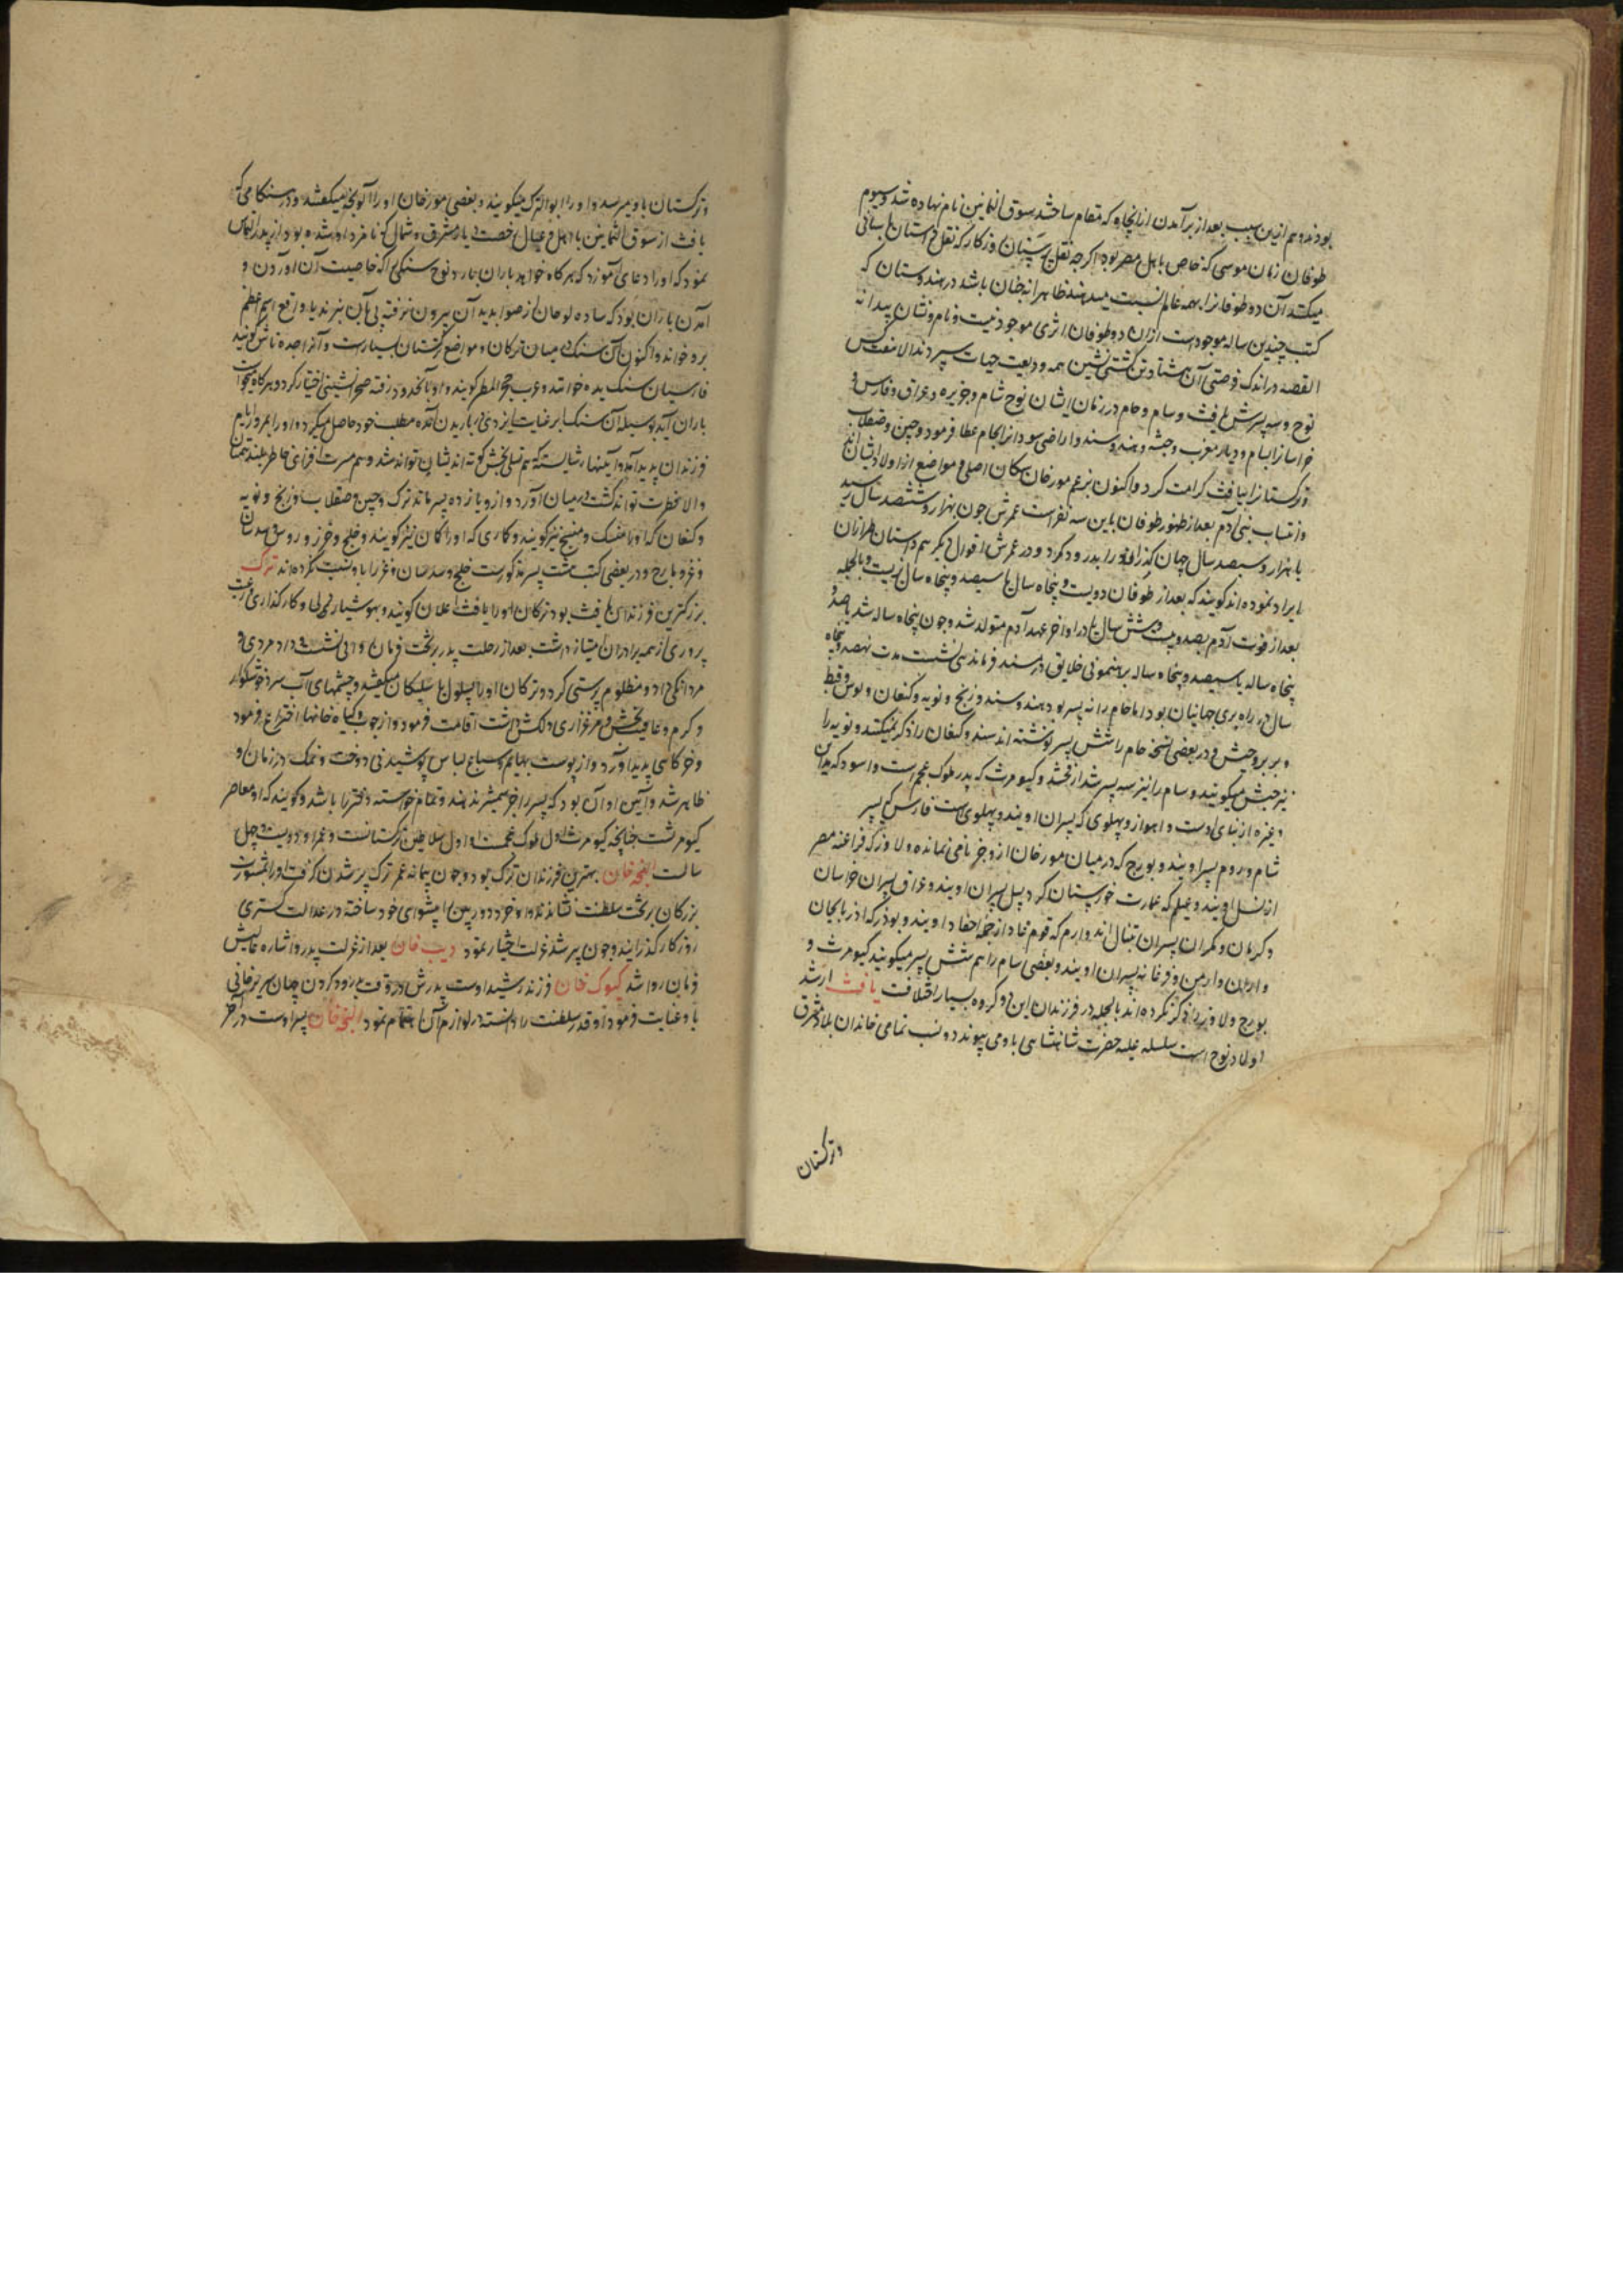 بودند و هم ازین سبب بعد از برآمدن ازانجا ده که مقام ساختند سوق الثمانین نام نهاده شد و سیوم
طوفان زمان موسی که خاص باهل مصر بود اکرچه نقل پرستان روزکار که نقل داستان باستانی
میکنند آن دو طوفانرا بهمه عالم نسبت میدهند ظاهرا نه چنان باشد در هندوستان که
کتب چندین ساله موجود است ازان دو طوفان اثری موجود نیست و نام و نشان پیدا نه
القصه در اندک فرصتی آن هشتاد تن کشتی نشین همه ودیعت حیات سپردند الا هفت کس
نوح و سه پسرش یافث و سام و حام و زنان ایشان نوح شام و جزیره و عراق و فارس و
خراسانرا بسام و دیار مغرب و حبشه و هند و سند و اراضی سودانرا بحام عطا فرمود و چین و صقلاب
و ترکستانرا بیافث کرامت کرد و اکنون بزعم مورخان سکان اصلی مواضع از اولاد ایشانند
و انتساب بنی آدم بعد از ظهور طوفان باین سه نفر است عمرش چون بهزار و ششصد سال رسید
یا هزار و سیصد سال جهان کذران را بدرود کرد و در عمرش اقوال دیکر هم داستان طرازان
ایراد نموده اند کویند که بعد از طوفان دویست و پنجاه سال یا سیصد و پنجاه سال زیست و بالجمله
بعد از فوت آدم بصد و بیست و شش سال یا در اواخر عهد آدم متولد شد و چون پنجاه ساله شد یا صد و
پنجاه ساله یا سیصد و پنجاه ساله برهنمونی خلایق در مسند فرماندهی نشست مدت نهصد و پنجاه
سال در راه بری جهانیان بود اما حام را نه پسر بود هند و سند و زنج و نوبه و کنعان و کوش و قبط
و بربر و حبش و در بعضی نسخه حام را شش پسر نوشته اند سند و کنعان را ذکر نمیکنند و نوبه را
نیز حبش میکویند و سام را نیز سه پسر شد ارفخشد و کیومرث که پدر ملوک عجم است و اسود که مداین
و غیره از بنای اوست و اهواز و پهلوی که پسران اویند و پهلویست فارس که پسر
شام و روم پسر اویند و بورج که در میان مورخان ازو جز نامی نمانده و لاوز که فراعنه مصر
از نسل اویند و عیلم که عمارت خوزستان کرد پسران اویند و عراق پسران خراسان
و کرمان و مکران پسران تنبال اند و ارم که قوم عاد از جمله احفاد اویند و بوذر که اذربایجان
و اران و ارمن و فرغانه پسران اویند و بعضی سام را هم شش پسر میکویند کیومرث و
بورج و لاوز را ذکر نکرده اند بالجمله در فرزندان این دو کروه بسیار اختلافت یافث ارشد
اولاد نوح است سلسله علیه حضرت شاهنشاهی باو می پیوندد و نسب تمامی خاندان بلاد مشرق
و ترکستان
و ترکستان باو میرسد و او را ابوالترک میکویند و بعضی مورخان او را آلوبخه میکفتند و در هنکامی که
یافث از سوق الثمانین با اهل و عیال رخصت دیار مشرق و شمال که نامزد او شده بود از پدر التماس
نمود که او را دعای آموزد که هر کاه خواهد باران بارد نوح سنکی را که خاصیت آن آوردن و
آمدن باران بود که ساده لوحان از صوابدید آن بیرون نرفته پی بآن نبرند یا واقع اسم اعظم
برو خواند و اکنون آن سنک در میان ترکان و مواضع ترکستان بسیارست و آنرا جده تاش کویند
فارسیان سنک یده خوانند و عرب حجر المطر کویند و او بآن حدود رفته صحرانشینی اختیار کرد و هر کاه میخواست
باران آید بوسیله آن سنک ابر عنایت ایزدی بباریدن آمده مطلب خود حاصل میکرد و او را بمرور ایام
فرزندان پدید آمد و آئینها شایسته که هم تسلی بخش کوته اندیشان تواند شد و هم مسرت افزای خاطر بلند همتان
والا فطرت تواند کشت در میان آورد و ازو یازده پسر ماند ترک و چین و صقلاب و زنج و نوبه
و کنعان که او را منسک و منسج نیز کویند و کاری که او را کان نیز کویند و خلج و خزر و روس و سدسان
و غز و بارج و در بعضی کتب هشت پسر مذکورست خلج و سدسان و غز را باو نسبت نکرده اند ترک
بزرکترین فرزندان یافث بود ترکان او را یافث اغلان کویند و بهوشیاری و کارکذاری و رعیت
پروری از همه برادران امتیاز داشت بعد از رحلت پدر بر تخت فرمان روایی نشست و داد مردمی و
مردانکی داد و مظلوم پرستی کرد و ترکان او را سلوک یا سیلکان میکفتند و چشمهای آب سرد و خوشکوار
و کرم و عافیت بخش و مرغزاری دلکش داشت اقامت فرمود و از چوب و کیاه خانها اختراع فرمود
و خرکاهی پدید آورد و از پوست بهایم و سباع لباس پوشیدنی دوخت و نمک در زمان او
ظاهر شد و آئین او آن بود که پسر را جز شمشیر ندهند و تمام خواسته دختر را باشد و کویند که او معاصر
کیومرث است چنانچه کیومرث اول ملوک عجمست او اول سلاطین ترکستانست و عمر او دویست و چهل
سالست النجه خان بهترین فرزندان ترک بود و چون پیمانه عمر ترک پر شدن کرفت او را بمشورت
بزرکان بر تخت سلطنت نشاندند او خرد دوربین را پیشوای خود ساخته در عدالت کستری
روزکار کذرانید و چون پیر شد عزلت اختیار نمود دیب خان بعد از عزلت پدر و اشاره عالیش
فرمان روا شد کیوک خان فرزند رشید اوست پدرش در وقت بدرود کردن جهان سریر خانی
باو عنایت فرمود او قدر سلطنت را دانسته در لوازم آن اهتمام نمود النجه خان پسر اوست در آخر